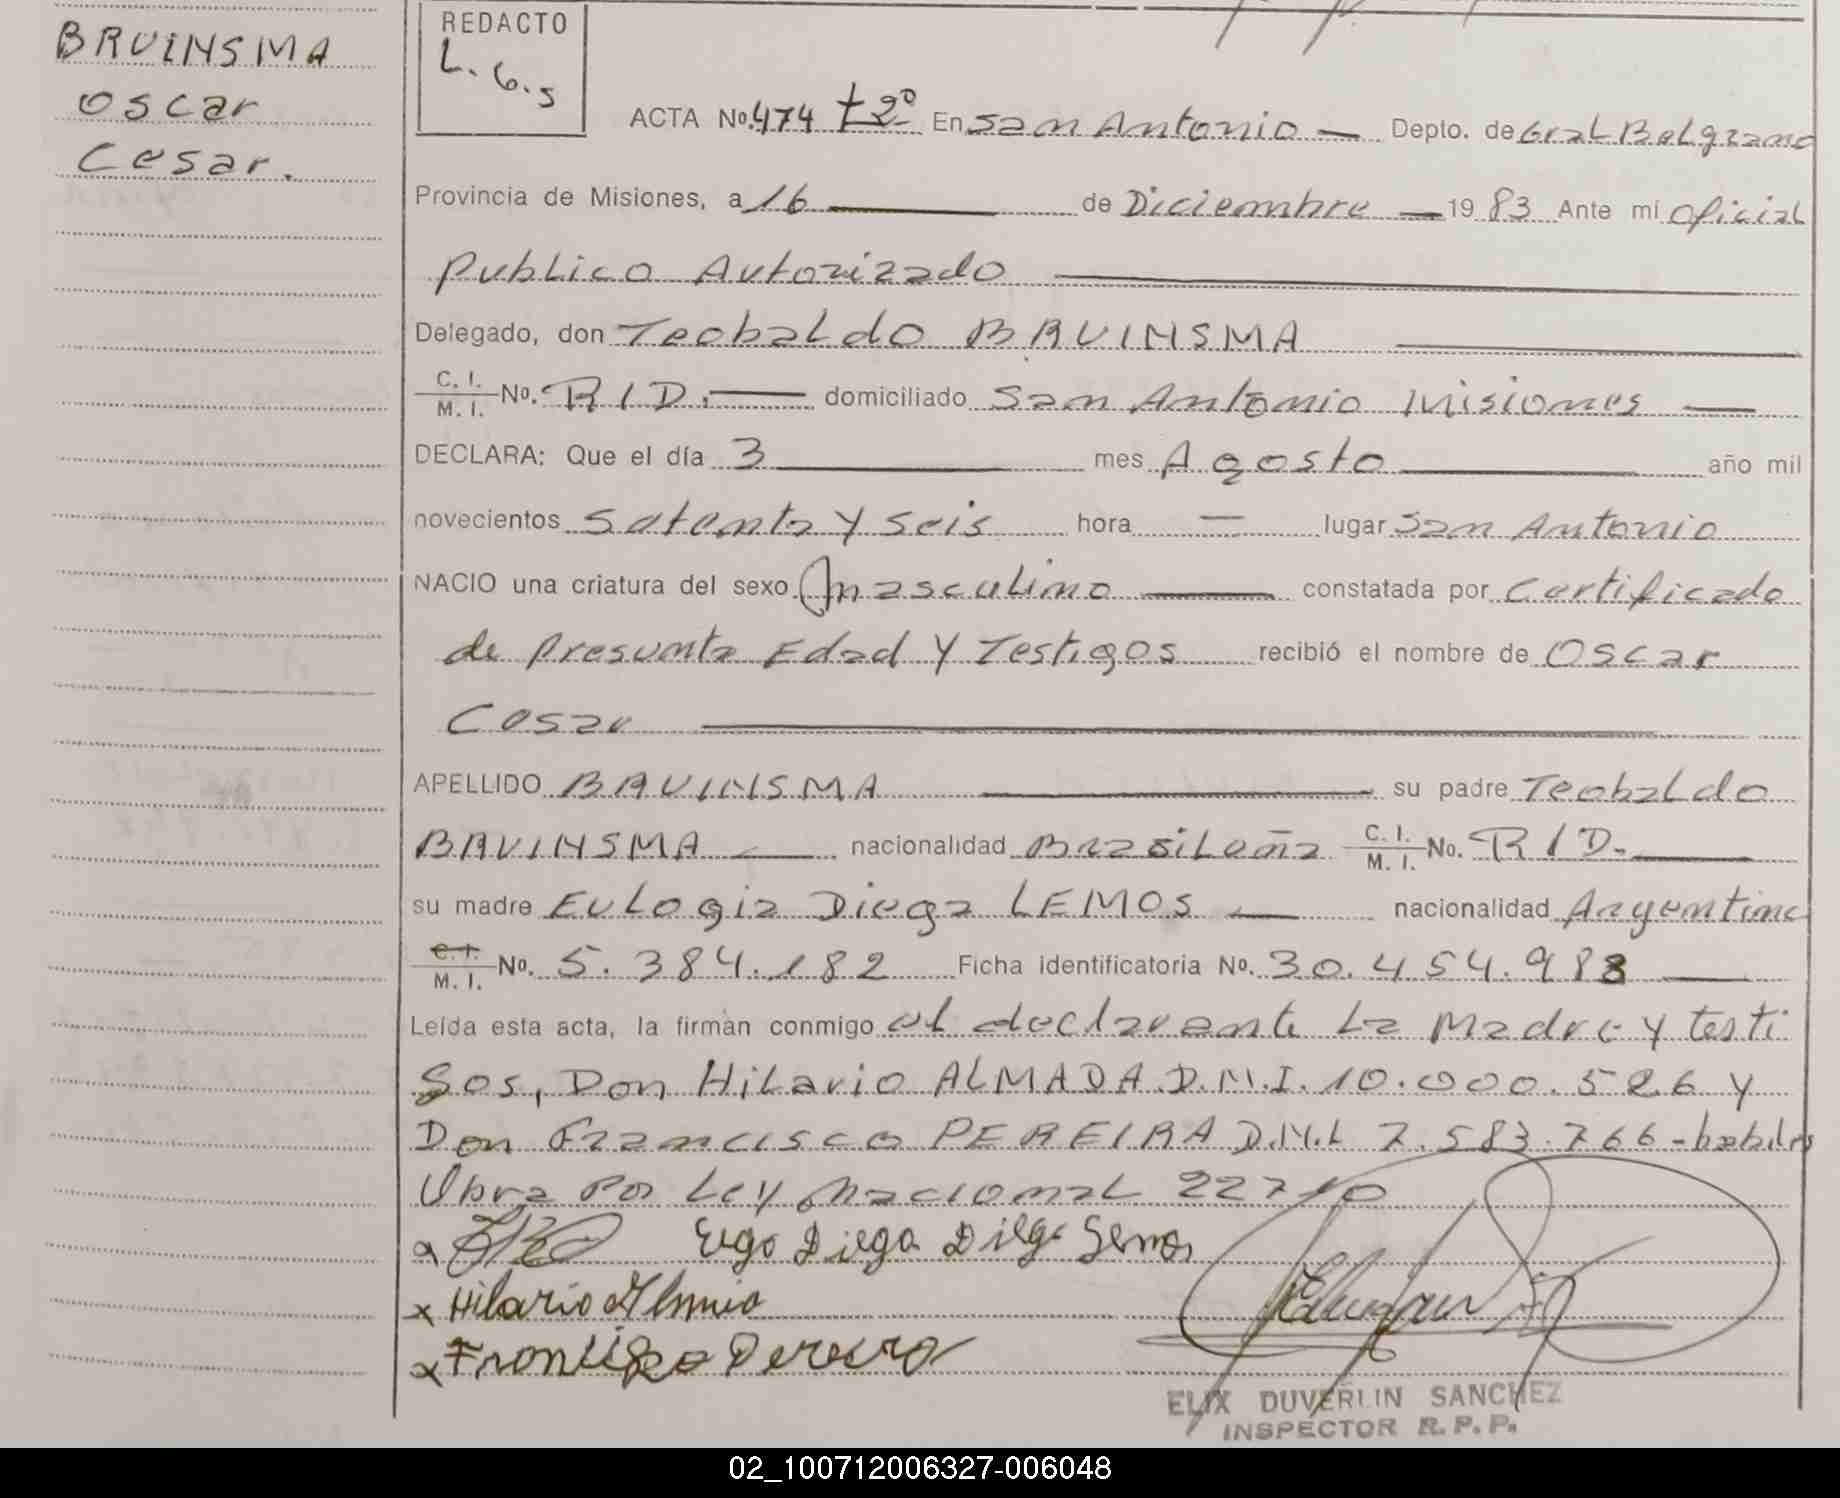 BRUINSMA
Oscar
Cesar.
REDACTO
L.G.S
ACTA No. 474 t2º En San Antonio — Depto. de Gral Belgrano
Provincia de Misiones, a 16 — de Diciembre — 19 83 Ante mi oficial
Publico Autorizado —
Delegado, don Teobaldo BRUINSMA —
C. I. / M. I. No. R I D. — domiciliado San Antonio Misiones —
DECLARA: Que el día 3 — mes Agosto — año mil
novecientos Setenta y Seis hora — lugar San Antonio
NACIO una criatura del sexo masculino — constatada por Certificado
de Presunta Edad y Testigos recibió el nombre de Oscar
Cesar —
APELLIDO BRUINSMA — su padre Teobaldo
BRUINSMA — nacionalidad Brasileña C. I. / M. I. No. R I D. —
su madre Eulogia Diega LEMOS — nacionalidad Argentina
C. I. / M. I. No. 5.384.182 Ficha identificatoria No. 30.454.988 —
Leída esta acta, la firman conmigo el declarante La Madre y testi
gos, Don Hilario ALMADA D.M.I. 10.000.526 y
Don Francisco PEREIRA D.M.I. 7.583.766 - habiles
Obra Por Ley Nacional 22710
Diega Diega Lemos
x Hilario
x
ELIX DUVERLIN SANCHEZ
INSPECTOR R.P.P.
02_100712006327-006048